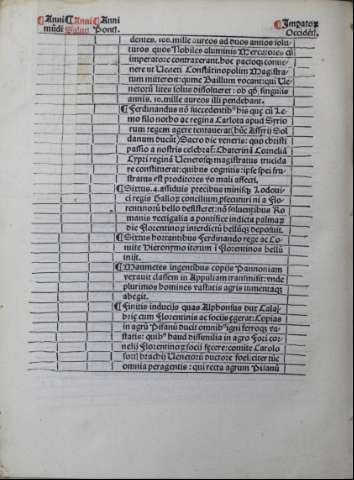 Anni mũdi
Anni Salutˀ
Anni Pontˀ.
Impatoꝝ Occidẽtˀ.
denten. 100. mille aureos ad duos annos solu-
turos quos Nobiles aluminis Mercatores cũ
imperatore contraxerant. hoc pacto: ꝙ conue-
nere ut Veneti Constãtinopolim Magistra-
tum mitterent: quẽ Baillum vocant: qui Ve-
netorũ lites solus dissolueret: ob qđ singulis
annis. 10. mille aureos illi pendebant.
¶ Ferdinandus nõ succedentibˀ his que cũ Ie-
mo filo notho ac regina Carlota apud Syrio
rum regem agere tentauerat (hũc Assyrii Sol
danum dicũt) Sacro die veneris: quo christi
passio a nostris celebratˀ: Chaterinã Corneliã
Cypri reginã Venetosqꝫ magistratus trucida
re constituerat: quibus cognitis: ipse spei fru-
stratus est proditores vo mali affecti.
¶ Sixtus. 4. assiduis precibus minisqꝫ Lodoui-
ci regis Galloꝝ concilium
rentinorũ bello desisteret: nõ soluentibus Ro
manis vectigalia a pontifice indicta palmaꝝ
die Florentinoꝝ interdictũ bellũqꝫ deposuit.
¶ Sixtus hortantibus Ferdinando rege ac Co-
mite Hieronymo iterum ĩ Florentinos bellũ
iniit.
¶ Maumetes ingentibus copijs Pannoniam
vexauit classem in Appuliam transmisit: vnde
plurimos homines vastatis agris iumentaqꝫ
abegit.
¶ Finitis inducijs quas Alphonsus dux Cala-
brie cum Florentinis ac socijs egerat: Copias
in agrũ Pisanũ ducit omnibˀ igni ferroqꝫ va-
statis: quibˀ haud dissimilia in agro Fori cor-
nelij Florentinoꝝ socii fecere: comite Carolo
sorti brachij Venetorũ ductore foeliciter tũc
omnia peragentis: qui recta agrum Pisanũ